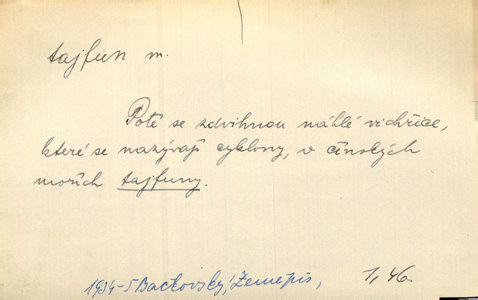 tajfún m.
Poté se zdvihnou náhlé vichřice,
které se nazývají cyklony, v čínských
mořích tajfuny.
1934-5 Bačkovský, Zeměpis, 1, 46